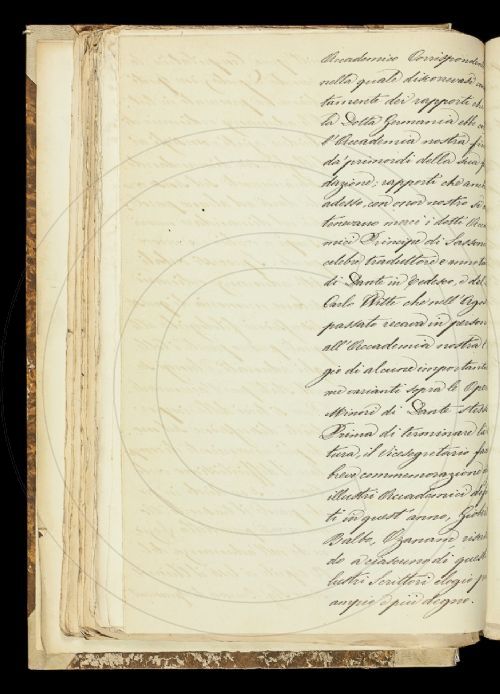 Accademico Corrisponden
nella quale discorrevasi
tamente dei rapporti ch
la Dotta Germania ebbe co
l'Accademia nostra fin
da' primordi della sua
dazione; rapporti che anc
adesso, con onor nostro
tenevano merci i dotti Acca
mici Principe di Sassoni
celebre traduttore e annota
di Dante in Tedesco, e del
Carlo Witte che nell'Ago
passato recava in person
all'Accademia nostra
gio di alcune importanti
me varianti sopra le Ope
Minori di Dante stess
Prima di terminare la
tura, il Vicesegretario fa
breve commemorazione
illustri Accademici
ti in quest'anno,
Balbo, Ozanam
do a ciascuno di ques
lustri Scrittori elogio p
ampio e più degno.